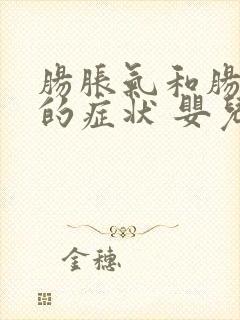 腸脹氣和腸
的症狀 嬰兒
金穗